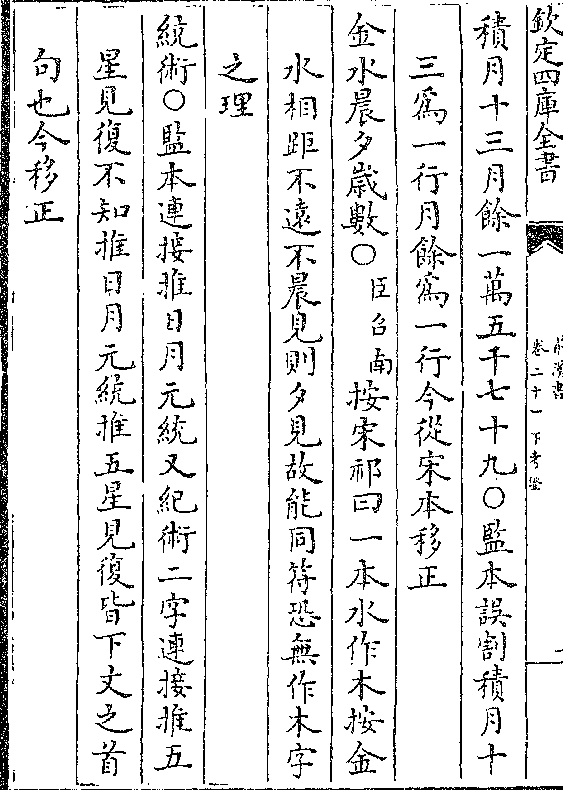 欽定四庫全書
前漢書
卷二十一下考證
積月十三月餘一萬五千七十九○監本誤割積月十
三爲一行月餘爲一行今從宋本移正
金水晨夕歲數○臣召南按宋祁曰一本水作木按金
水相距不遠不晨見則夕見故能同符恐無作木字
之理
統術○監本連接推日月元統又紀術二字連接推五
星見復不知推日月元統推五星見復皆下文之首
句也今移正